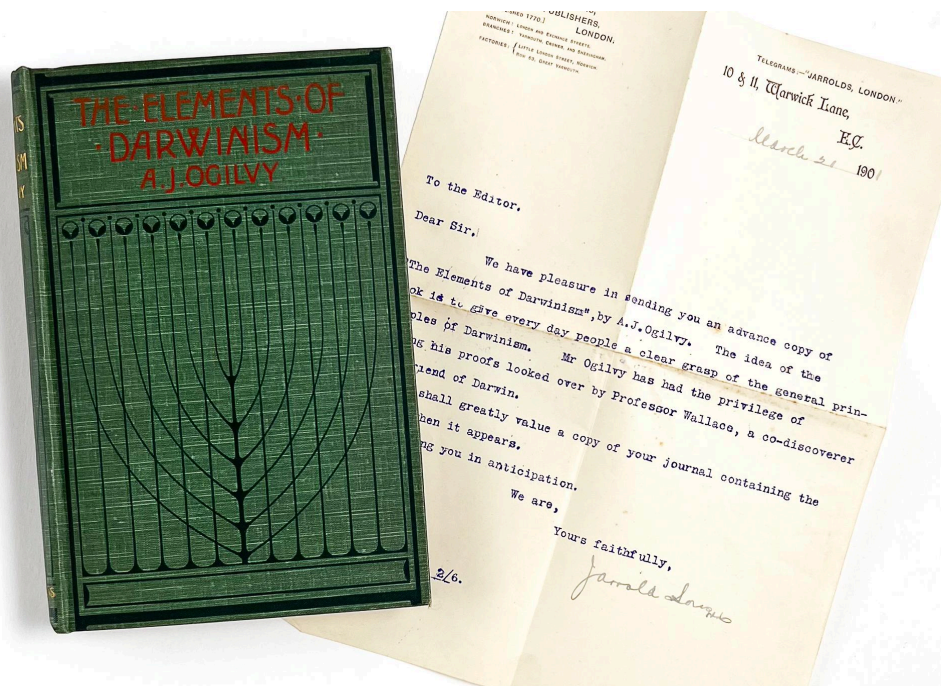 THE·ELEMENTS·OF
·DARWINISM·
A.J.OGILVY
PUBLISHERS,
1770.]
LONDON,
NORWICH: LONDON AND EXCHANGE STREETS.
BRANCHES: YARMOUTH, CROMER, AND SHERINGHAM.
FACTORIES: { LITTLE LONDON STREET, NORWICH.
GREAT YARMOUTH.
TELEGRAMS:—"JARROLDS, LONDON."
10 & 11, Warwick Lane,
E.C.
March 21 1901
To the Editor.
Dear Sir,
We have pleasure in sending you an advance copy of
"The Elements of Darwinism",by A.J.Ogilvy. The idea of the
ok is to give every day people a clear grasp of the general prin-
ples of Darwinism. Mr Ogilvy has had the privilege of
ng his proofs looked over by Professor Wallace, a co-discoverer
iend of Darwin.
shall greatly value a copy of your journal containing the
hen it appears.
ng you in anticipation.
We are,
Yours faithfully,
Jarrold & Sons
2/6.